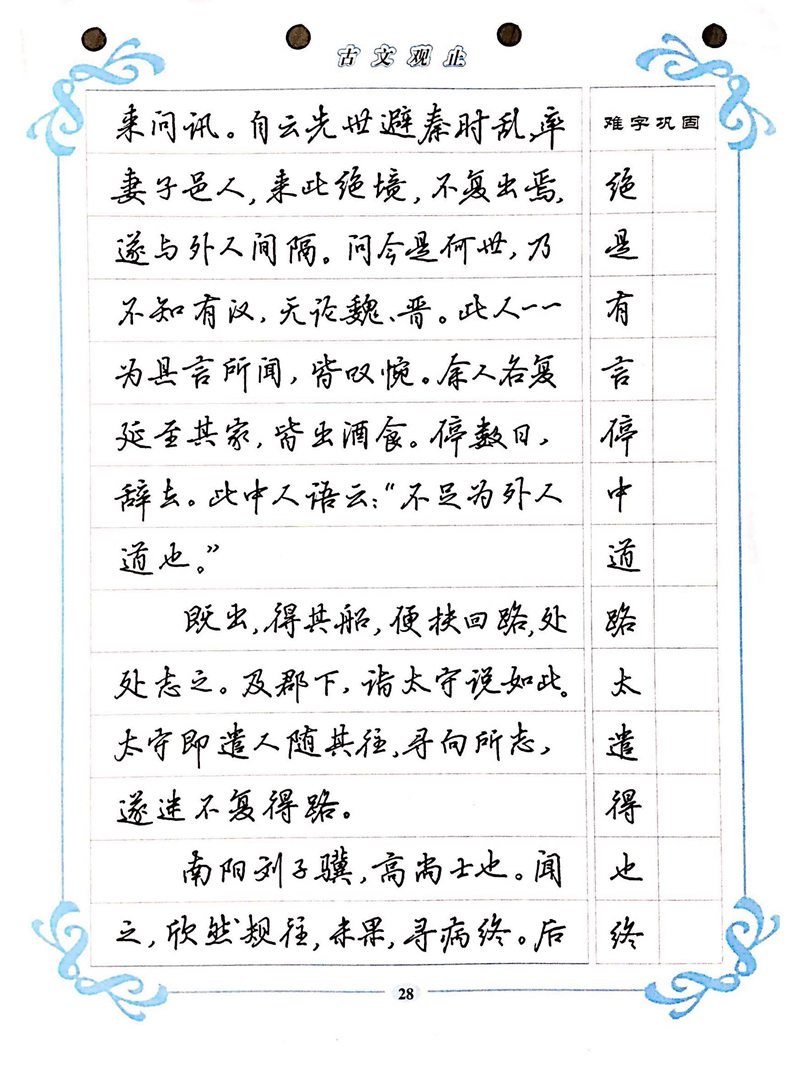 古文观止
来问讯。自云先世避秦时乱,率
妻子邑人,来此绝境,不复出焉,
遂与外人间隔。问今是何世,乃
不知有汉,无论魏、晋。此人一一
为具言所闻,皆叹惋。余人各复
延至其家,皆出酒食。停数日,
辞去。此中人语云:“不足为外人
道也。”
既出,得其船,便扶向路,处
处志之。及郡下,诣太守说如此。
太守即遣人随其往,寻向所志,
遂迷不复得路。
南阳刘子骥,高尚士也。闻
之,欣然规往,未果,寻病终。后
难字巩固
绝
是
有
言
停
中
道
路
太
遣
得
也
终
28